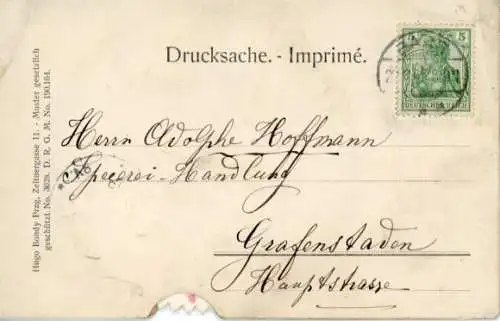 Drucksache. - Imprimé.
5
DEUTSCHES REICH
Herrn Adolphe Hoffmann
Speierei-Handlung
Grafenstaden
Hauptstrasse
Hugo Bondy Prag, Zeltnergasse 11. - Muster gesetzlich
geschützt No. 3029. D. R. G. M. No. 190.164.